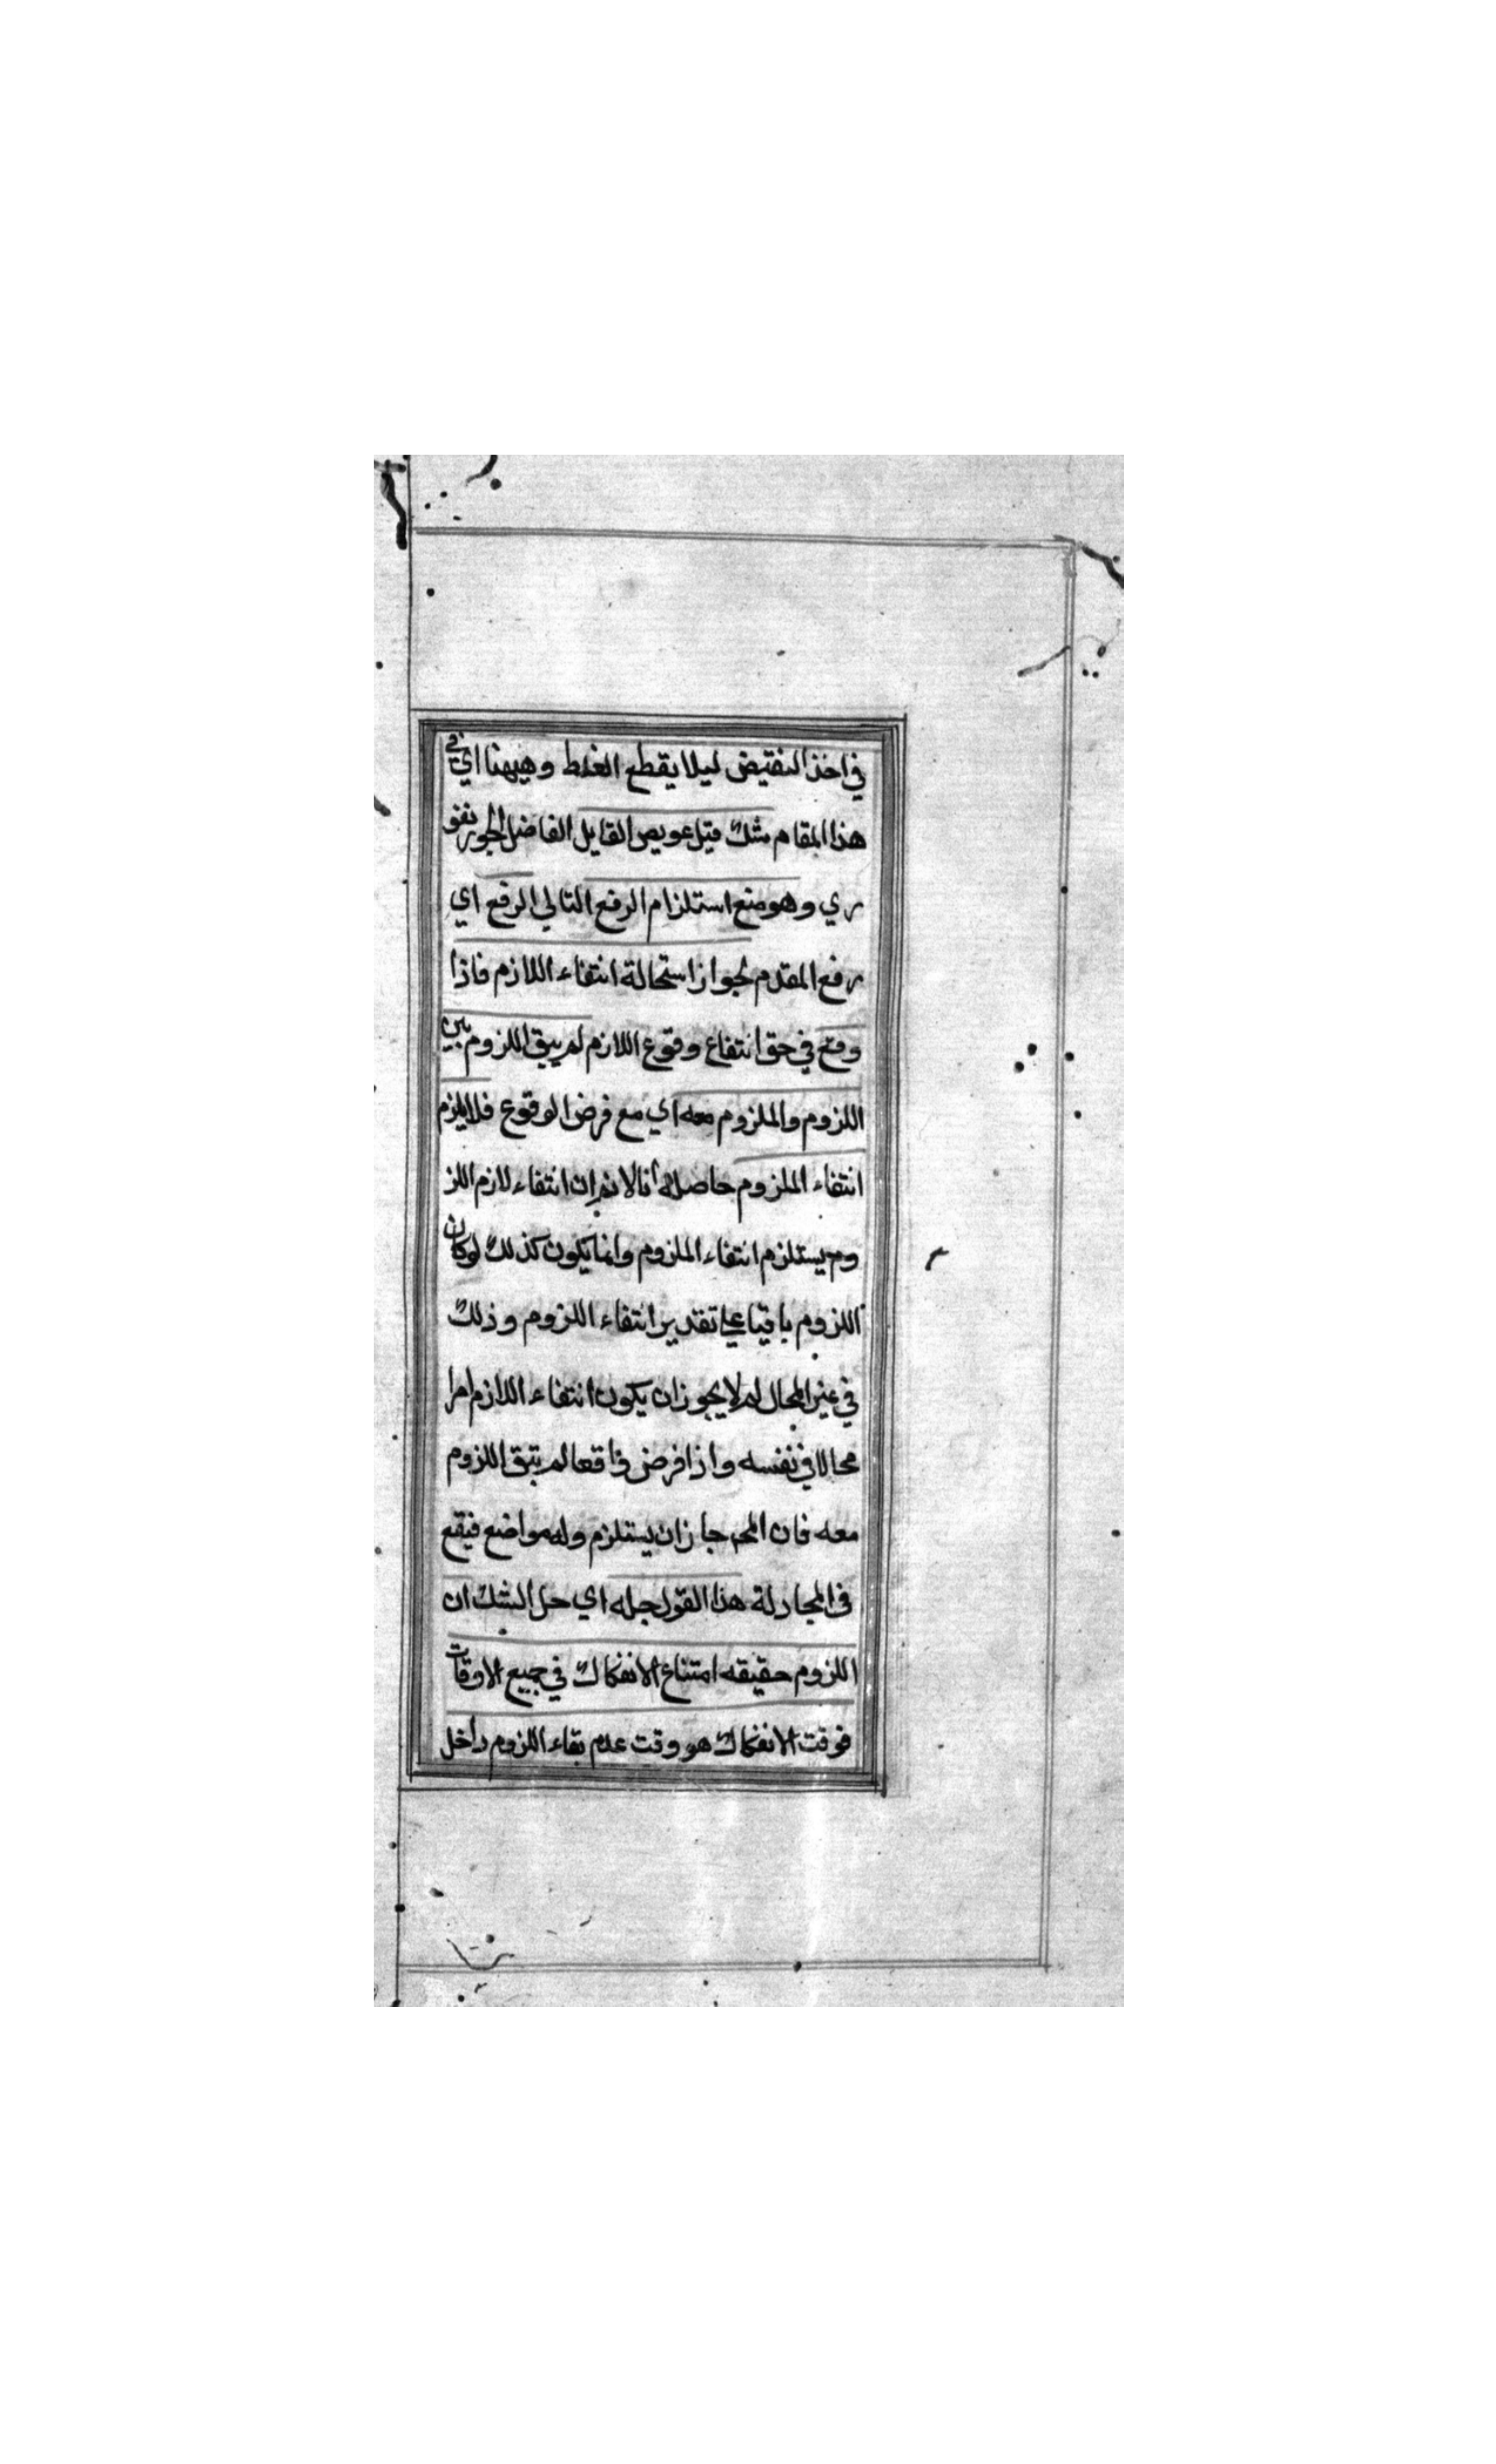 في اخذ النقيض ليلا يقطع الغلط وهيهنا اي في
هذا المقام شك قيل عويص القايل الفاضل الجورنفو
ري وهو منع استلزام الرفع التالي الرفع اي
رفع المقدم لجواز استحالة انتفاء اللازم فاذا
وقع في حق انتفاع وقوع اللازم لم يبق اللزوم بين
اللزوم والملزوم معه اي مع فرض الوقوع فلا يلزم
انتفاء الملزوم حاصله انا لانم ان انتفاء لازم اللز
وم يستلزم انتفاء الملزوم وانما يكون كذلك لوكان
اللزوم باقيا علي تقدير انتفاء اللزوم وذلك
في غير المحال لم لا يجوز ان يكون انتفاء اللازم امرا
محالا في نفسه واذا فرض واقعا لم يبق اللزوم
معه فان المح جاز ان يستلزم وله مواضع فيقع
في المجادلة هذا القول حله اي حل الشك ان
اللزوم حقيقه امتناع الانفكاك في جميع الاوقات
فوقت الانفكاك هو وقت عدم بقاء اللزوم داخل